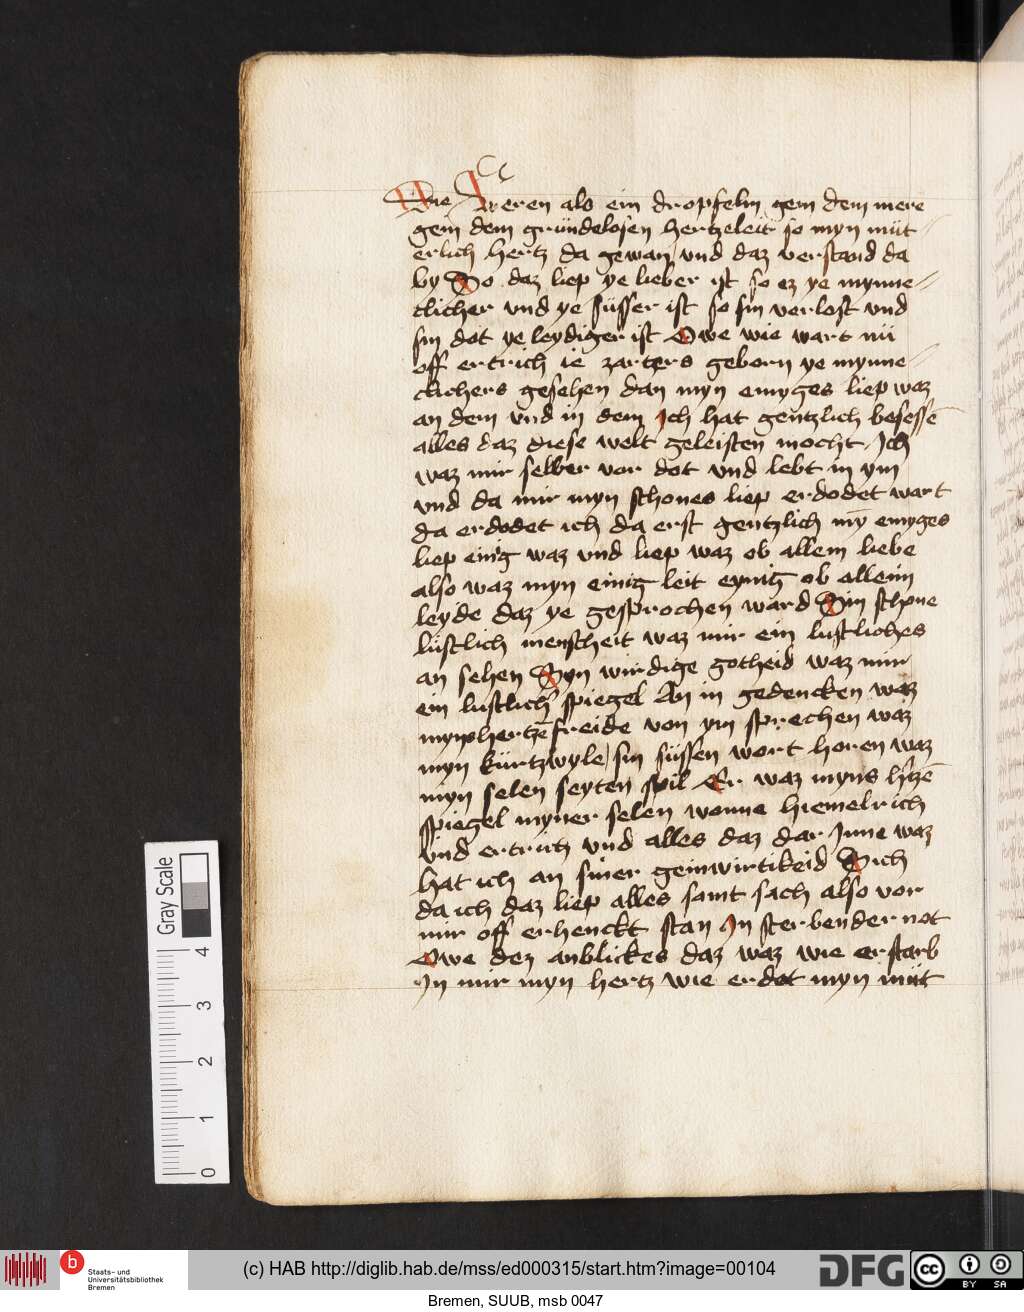 Die weren als ein dropfelin gem dem mere
gein dem gründelosen hertzeleit so myn müt
erlich hertz da gewan und daz verstand da
by So daz liep ye lieber ist so ez ye mynne
clicher und ye süsser ist so sin verlost und
sin dot ye leydiger ist Owe wie wart nü
off ertrich ie zarters geborn ye mynne
clichers gesehen dan myn eynyges liep waz
an dem und in dem Ich hat gentzlich besessē
alles daz diese welt geleisten mocht Ich
waz mir selber vor dot und lebt in ym
und da mir myn schones liep erdodet wart
da erdodet ich da erst gentzlich mȳ eynyges
liep einig waz und liep waz ob allem liebe
also waz myn einig leit eynig ob allem
leyde daz ye gesprochen ward Sin schone
lüstlich menscheit waz mir ein lustliches
an sehen Syn wirdige gotheid waz mir
ein lustlich spiegel An in gedencken waz
myns hertzē freide von ym sprechen waz
myn kürtzwyle sin süssen wort horen waz
myn selen seyten spil Er waz myns h̄tzē
spiegel myner selen wonne hiemelrich
und ertrich und alles daz dar Inne waz
hat ich an siner geinwirtikeid Sich
da ich daz liep alles samt sach also vor
mir off erhenckt stan In sterbender not
Owe dez anblickes daz waz wie erstarb
In mir myn hertz wie erdot myn müt
Gray Scale
4
3
2
1
0
b
Staats- und
Universitätsbibliothek
Bremen
(c) HAB http://diglib.hab.de/mss/ed000315/start.htm?image=00104
DFG
cc BY SA
Bremen, SUUB, msb 0047